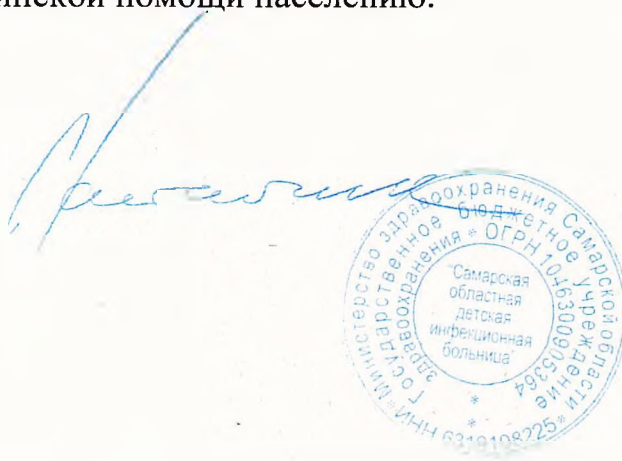 помощи населению.
Министерство здравоохранения Самарской области * ИНН 6319108225 *
Государственное бюджетное учреждение
здравоохранения * ОГРН 1046300905364
"Самарская
областная
детская
инфекционная
больница"